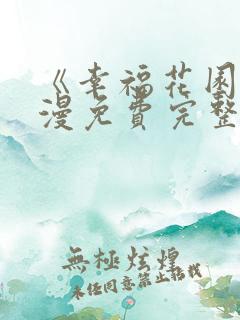 《幸福花园
漫免費完整
無極炫煌
未经同意禁止转载